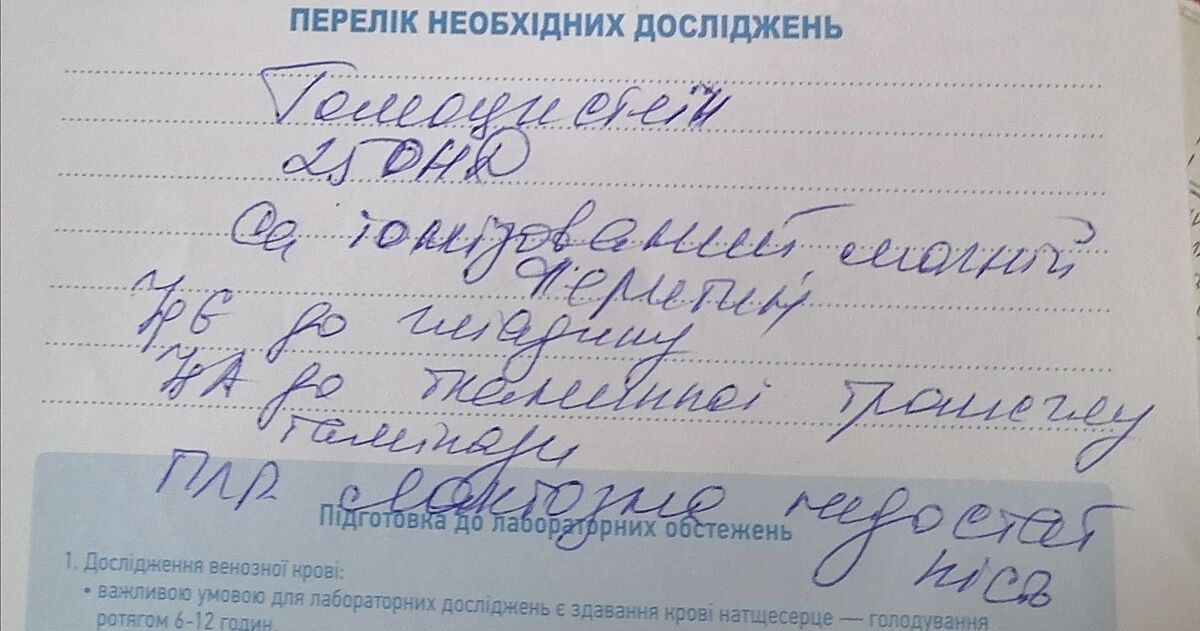 ПЕРЕЛІК НЕОБХІДНИХ ДОСЛІДЖЕНЬ
Гомоцистеїн
25 ОНД
Ca іонізований магній
Феритин
IgG до гліадину
IgA до тканинної трансглу
тамінази
ПЛР лактозна недостат
ність
Підготовка до лабораторних обстежень
1. Дослідження венозної крові:
• важливою умовою для лабораторних досліджень є здавання крові натщесерце — голодування
ротягом 6-12 годин.